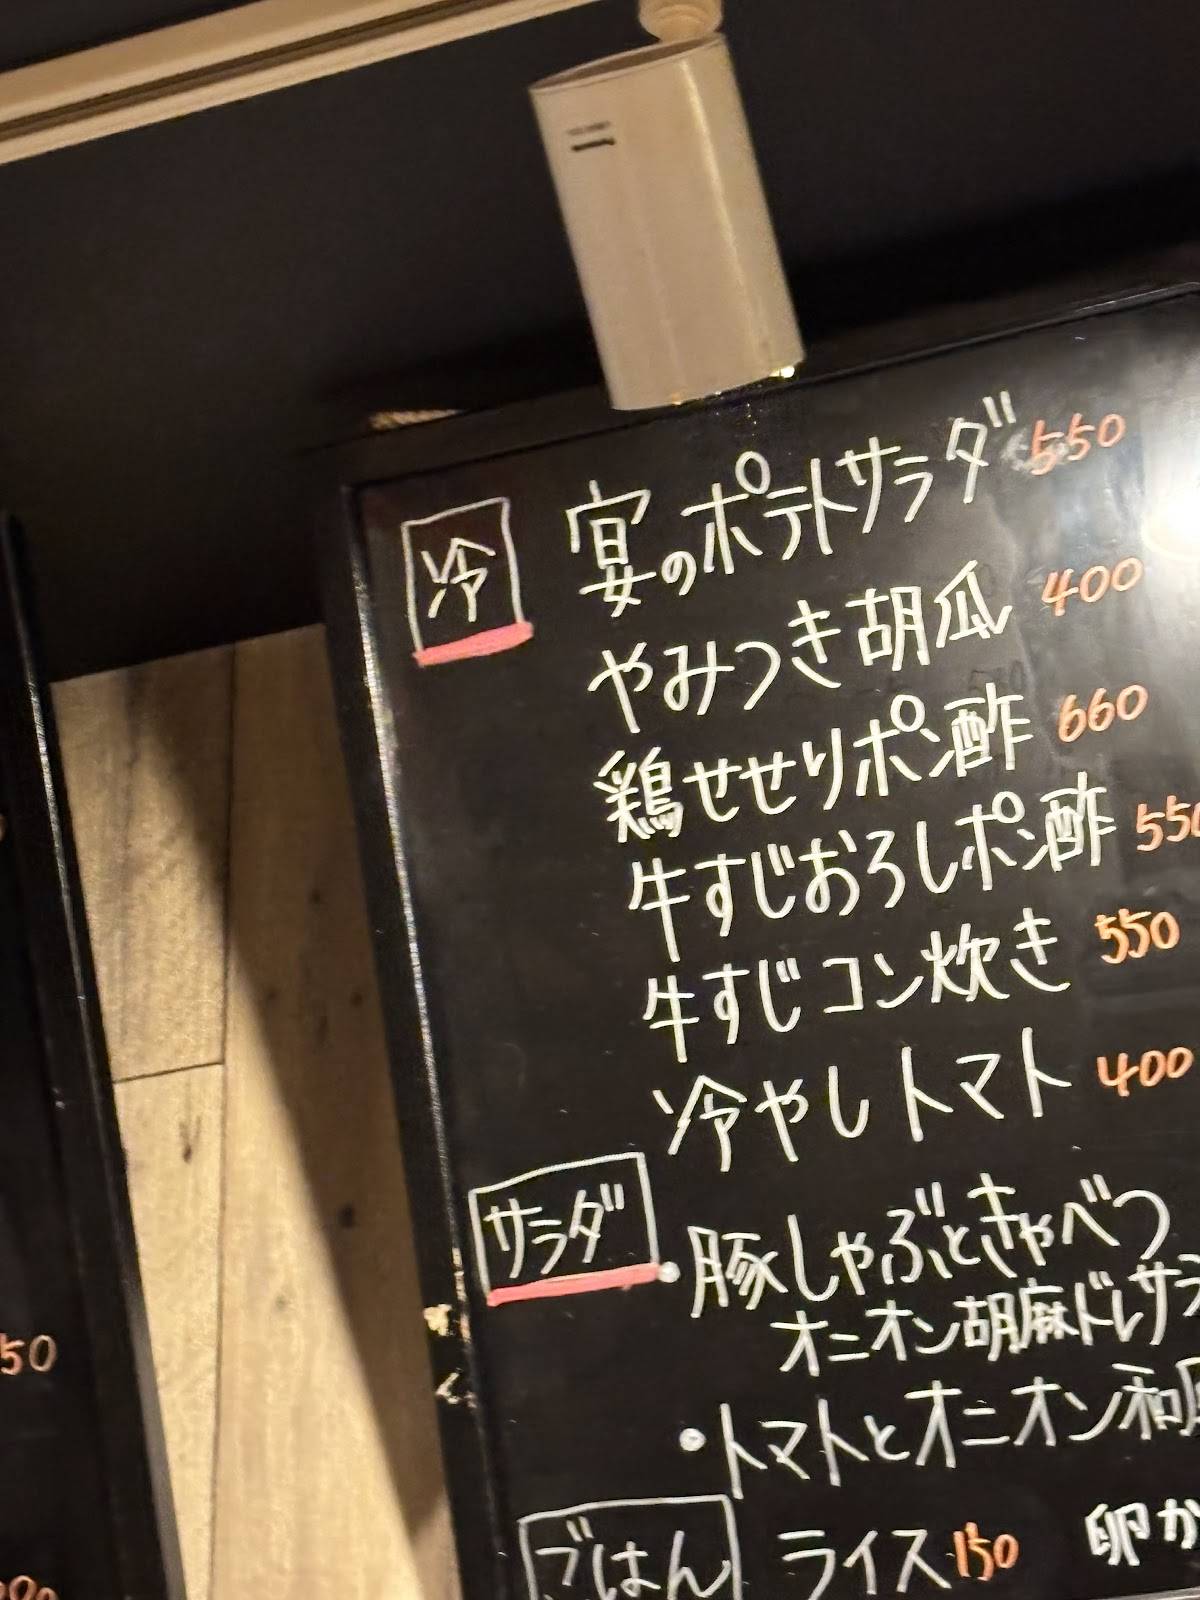 冷
宴のポテトサラダ 550
やみつき胡瓜 400
鶏せせりポン酢 660
牛すじおろしポン酢 550
牛すじコン炊き 550
冷やしトマト 400
サラダ
・豚しゃぶときゃべつ
オニオン胡麻ドレサラ
・トマトとオニオン和
ごはん
ライス 150
卵か
50